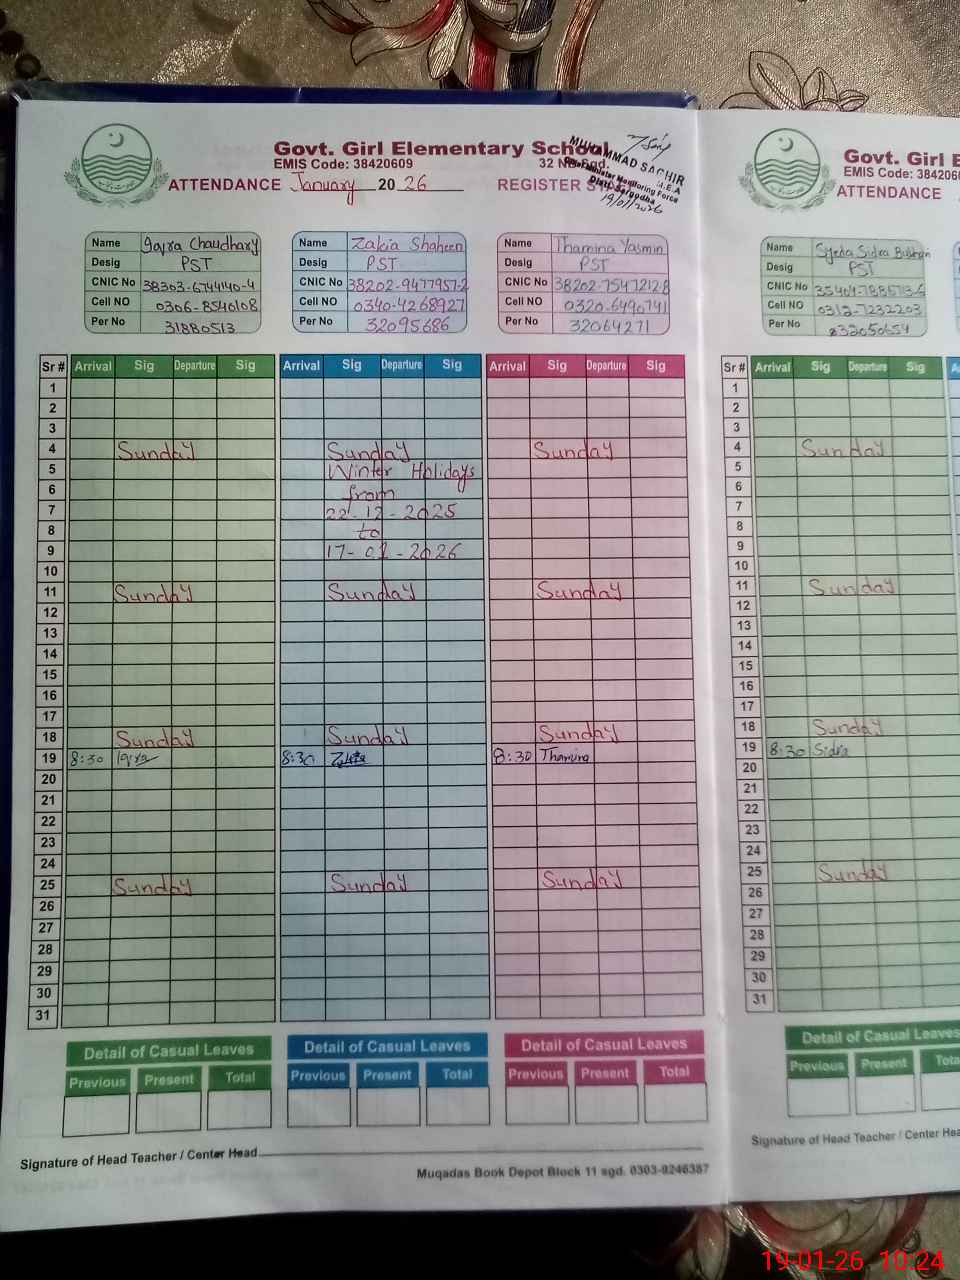 Govt. Girl Elementary School
EMIS Code: 38420609
32 NB Sgd.
ATTENDANCE January 2026
REGISTER
MUHAMMAD SAGHIR
M.E.A
Monitoring Force
Distt. Sargodha
19/01/2026
Name Iqra Chaudhary
Desig PST
CNIC No 38303-6744140-4
Cell NO 0306-8540108
Per No 31880513
Name Zakia Shaheen
Desig PST
CNIC No 38202-9477957-2
Cell NO 0340-4268927
Per No 32095686
Name Thamina Yasmin
Desig PST
CNIC No 38202-7547212-8
Cell NO 0320-6490741
Per No 32064271
Sr # Arrival Sig Departure Sig Arrival Sig Departure Sig Arrival Sig Departure Sig
1
2
3
4 Sunday Sunday Sunday
5 Winter Holidays
6 from
7 22-12-2025
8 to
9 17-01-2026
10
11 Sunday Sunday Sunday
12
13
14
15
16
17
18 Sunday Sunday Sunday
19 8:30 Iqra 8:30 Zakia 8:30 Thamina
20
21
22
23
24
25 Sunday Sunday Sunday
26
27
28
29
30
31
Detail of Casual Leaves Detail of Casual Leaves Detail of Casual Leaves
Previous Present Total Previous Present Total Previous Present Total
Signature of Head Teacher / Center Head
Muqadas Book Depot Block 11 sgd. 0303-9246387
Govt. Girl E
EMIS Code: 3842060
ATTENDANCE
Name Syeda Sidra Bukhari
Desig PST
CNIC No
Cell NO 0312-7232203
Per No
Sr # Arrival Sig Departure Sig
1
2
3
4 Sunday
5
6
7
8
9
10
11 Sunday
12
13
14
15
16
17
18 Sunday
19 8:30 Sidra
20
21
22
23
24
25 Sunday
26
27
28
29
30
31
Detail of Casual Leaves
Previous Present Tota
Signature of Head Teacher / Center Hea
19-01-26 10:24